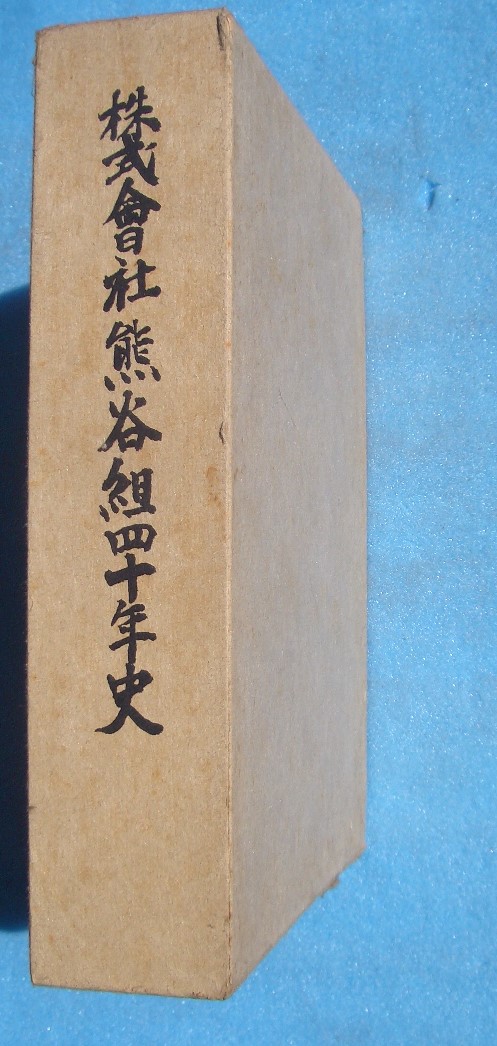 株式會社熊谷組四十年史